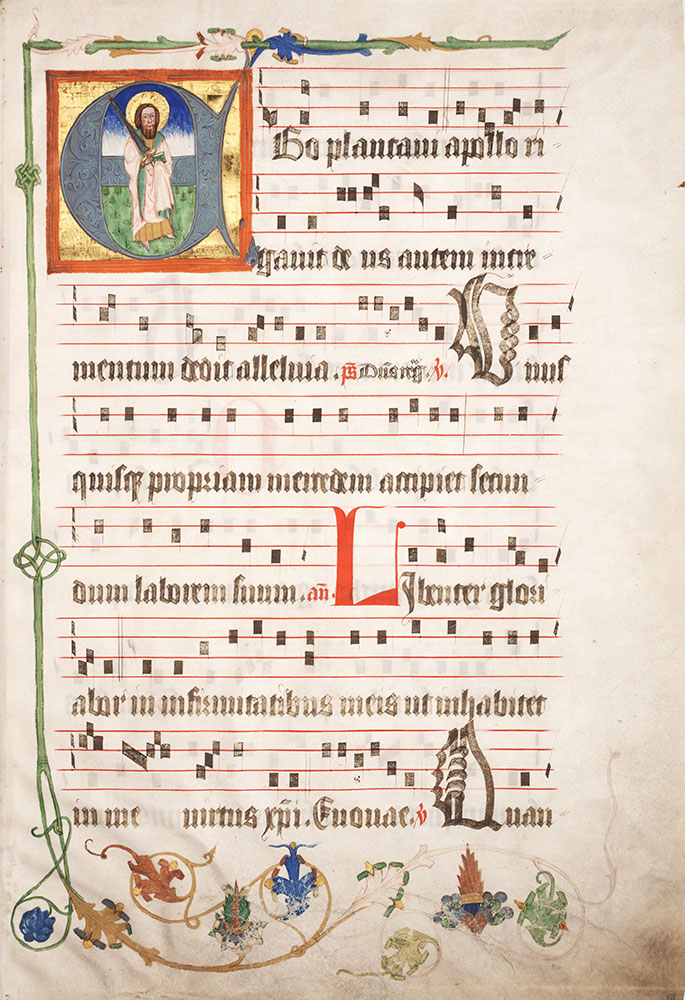 Ego plantaui apollo ri
gauit de us autem incre
mentum dedit alleluia . p̄s Dn̄s reḡ. v̄. Vnus
quisq₃ propriam mercedem accipiet secun
dum laborem suum . an̄. Libenter glori
abor in infirmitatibus meis ut inhabitet
in me uirtus xp̄i . Euouae . v̄ Quan